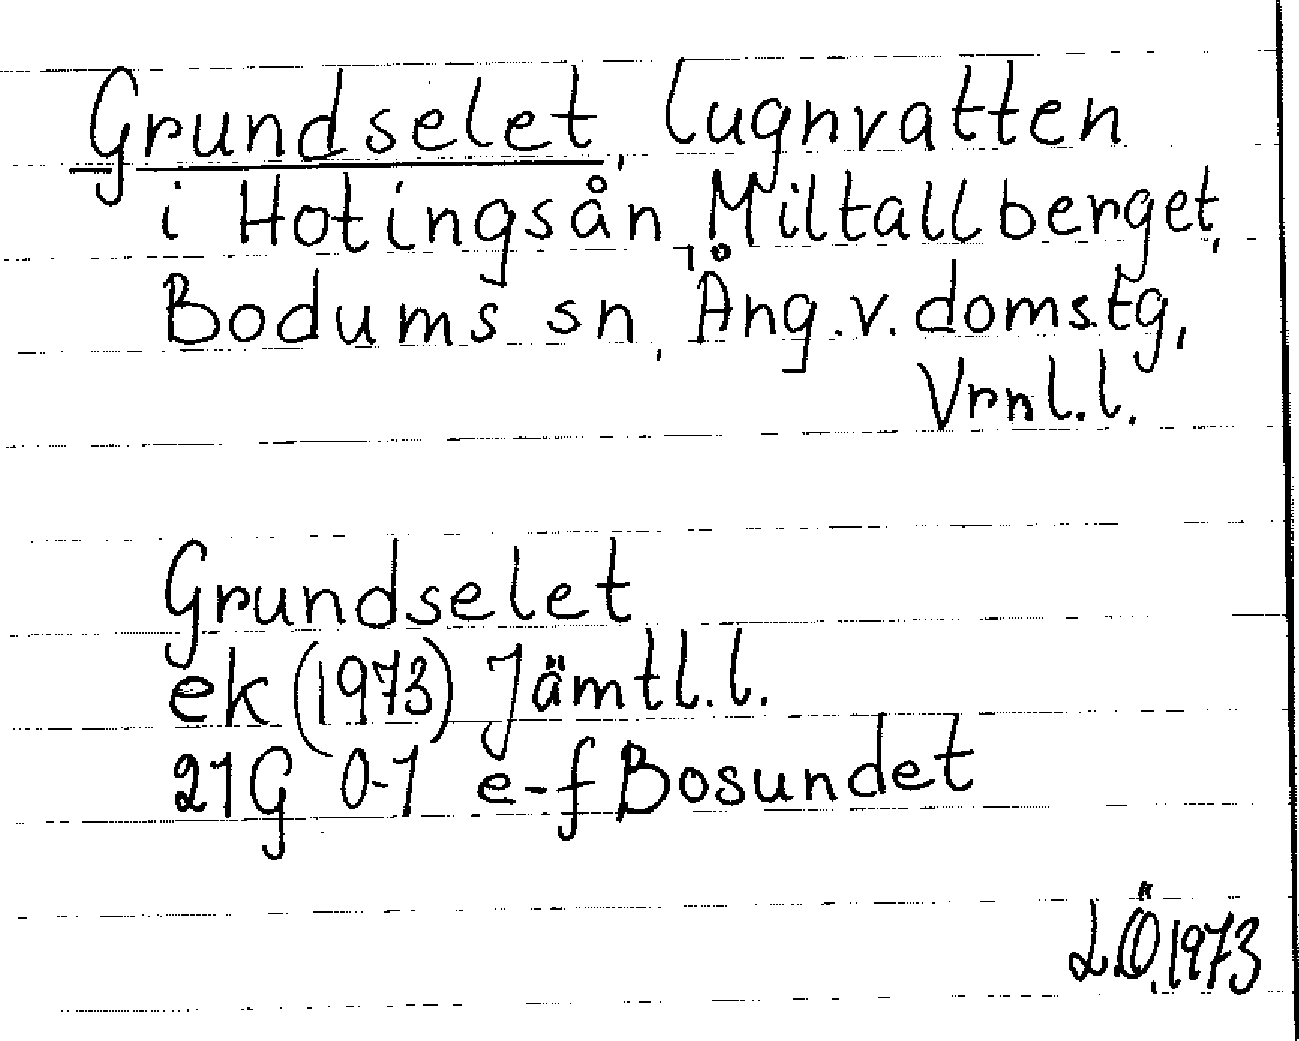 Grundselet, lugnvatten
i Hotingsån, Miltallberget,
Bodums sn, Ång.v. doms.tg,
Vrnl.l.
Grundselet
ek (1973) Jämtl.l.
21G 0-1 e-f Bosundet
LÖ.1973